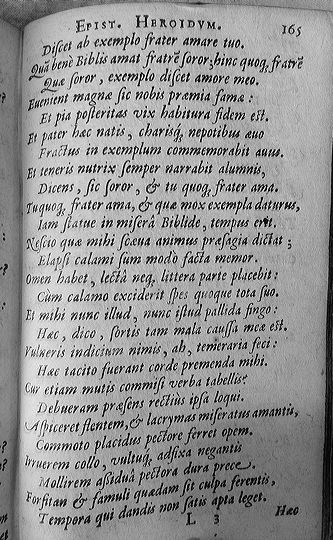 EPIST. HEROIDVM. 165
Discet ab exemplo frater amare tuo.
Quā bene Biblis amat fratrē soror; hinc quoq; fratrē
Quæ soror, exemplo discet amore meo.
Evenient magnæ sic nobis præmia famæ:
Et pia posteritas vix habitura fidem est.
Et pater hæc natis, charisq; nepotibus ævo
Fractus in exemplum commemorabit avus.
Et teneris nutrix semper narrabit alumnis,
Dicens, sic soror, & tu quoq; frater ama.
Tu quoq; frater ama, & quæ mox exempla daturus,
Iam statue in miserâ Biblide, tempus erit.
Nescio quæ mihi scæva animus præsagia dictat;
Elapsi calami sum modò facta memor.
Omen habet, lectâ neq; littera parte placebit:
Cùm calamo exciderit spes quoque tota suo.
Et mihi nunc illud, nunc istud pallida fingo:
Hæc, dico, sortis tam mala caussa meæ est.
Vulneris indicium nimis, ah, temeraria feci:
Hæc tacito fuerant corde premenda mihi.
Cur etiam mutis commisi verba tabellis?
Debueram præsens rectiùs ipsa loqui.
Aspiceret flentem, & lacrymas miseratus amantis,
Commoto placidus pectore ferret opem.
Irruerem collo, vultuq; adfixa negantis
Mollirem assiduâ pectora dura prece.
Forsitan & famuli quædam sit culpa ferentis,
Tempora qui dandis non satis apta leget.
L 3 Hæc